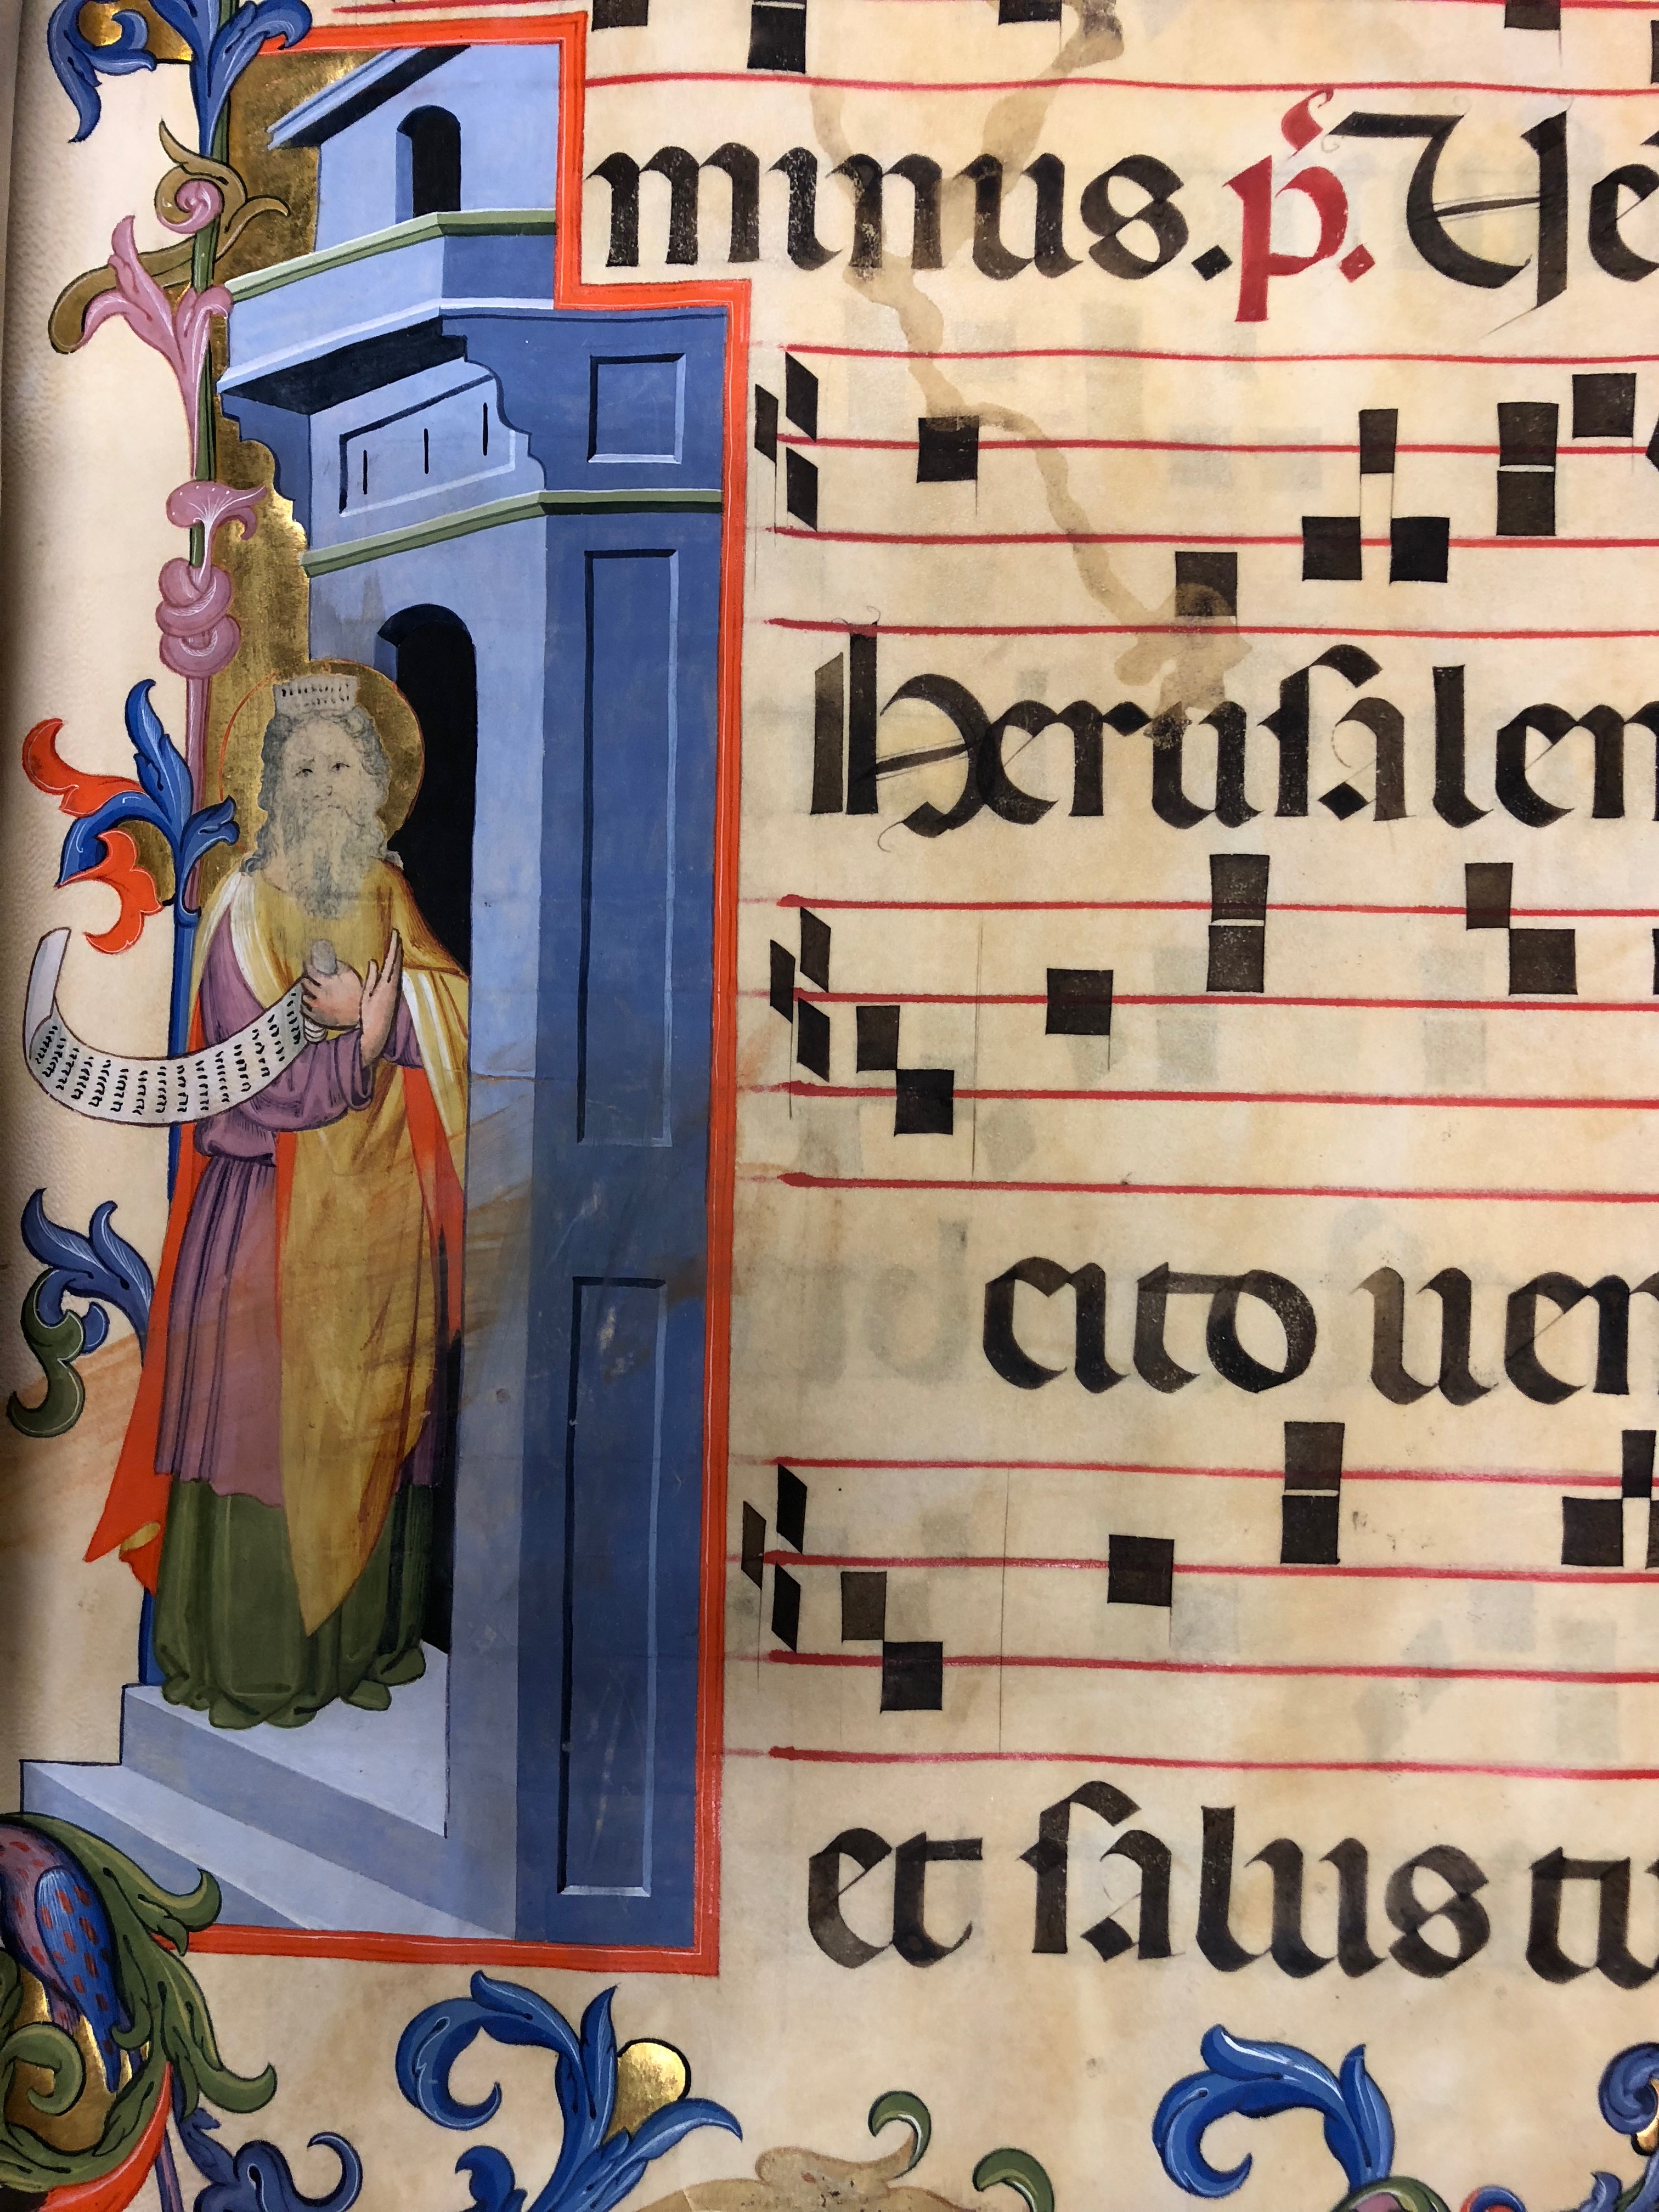 minus. p. Ve
Iherusalem
cito uen
et salus tu